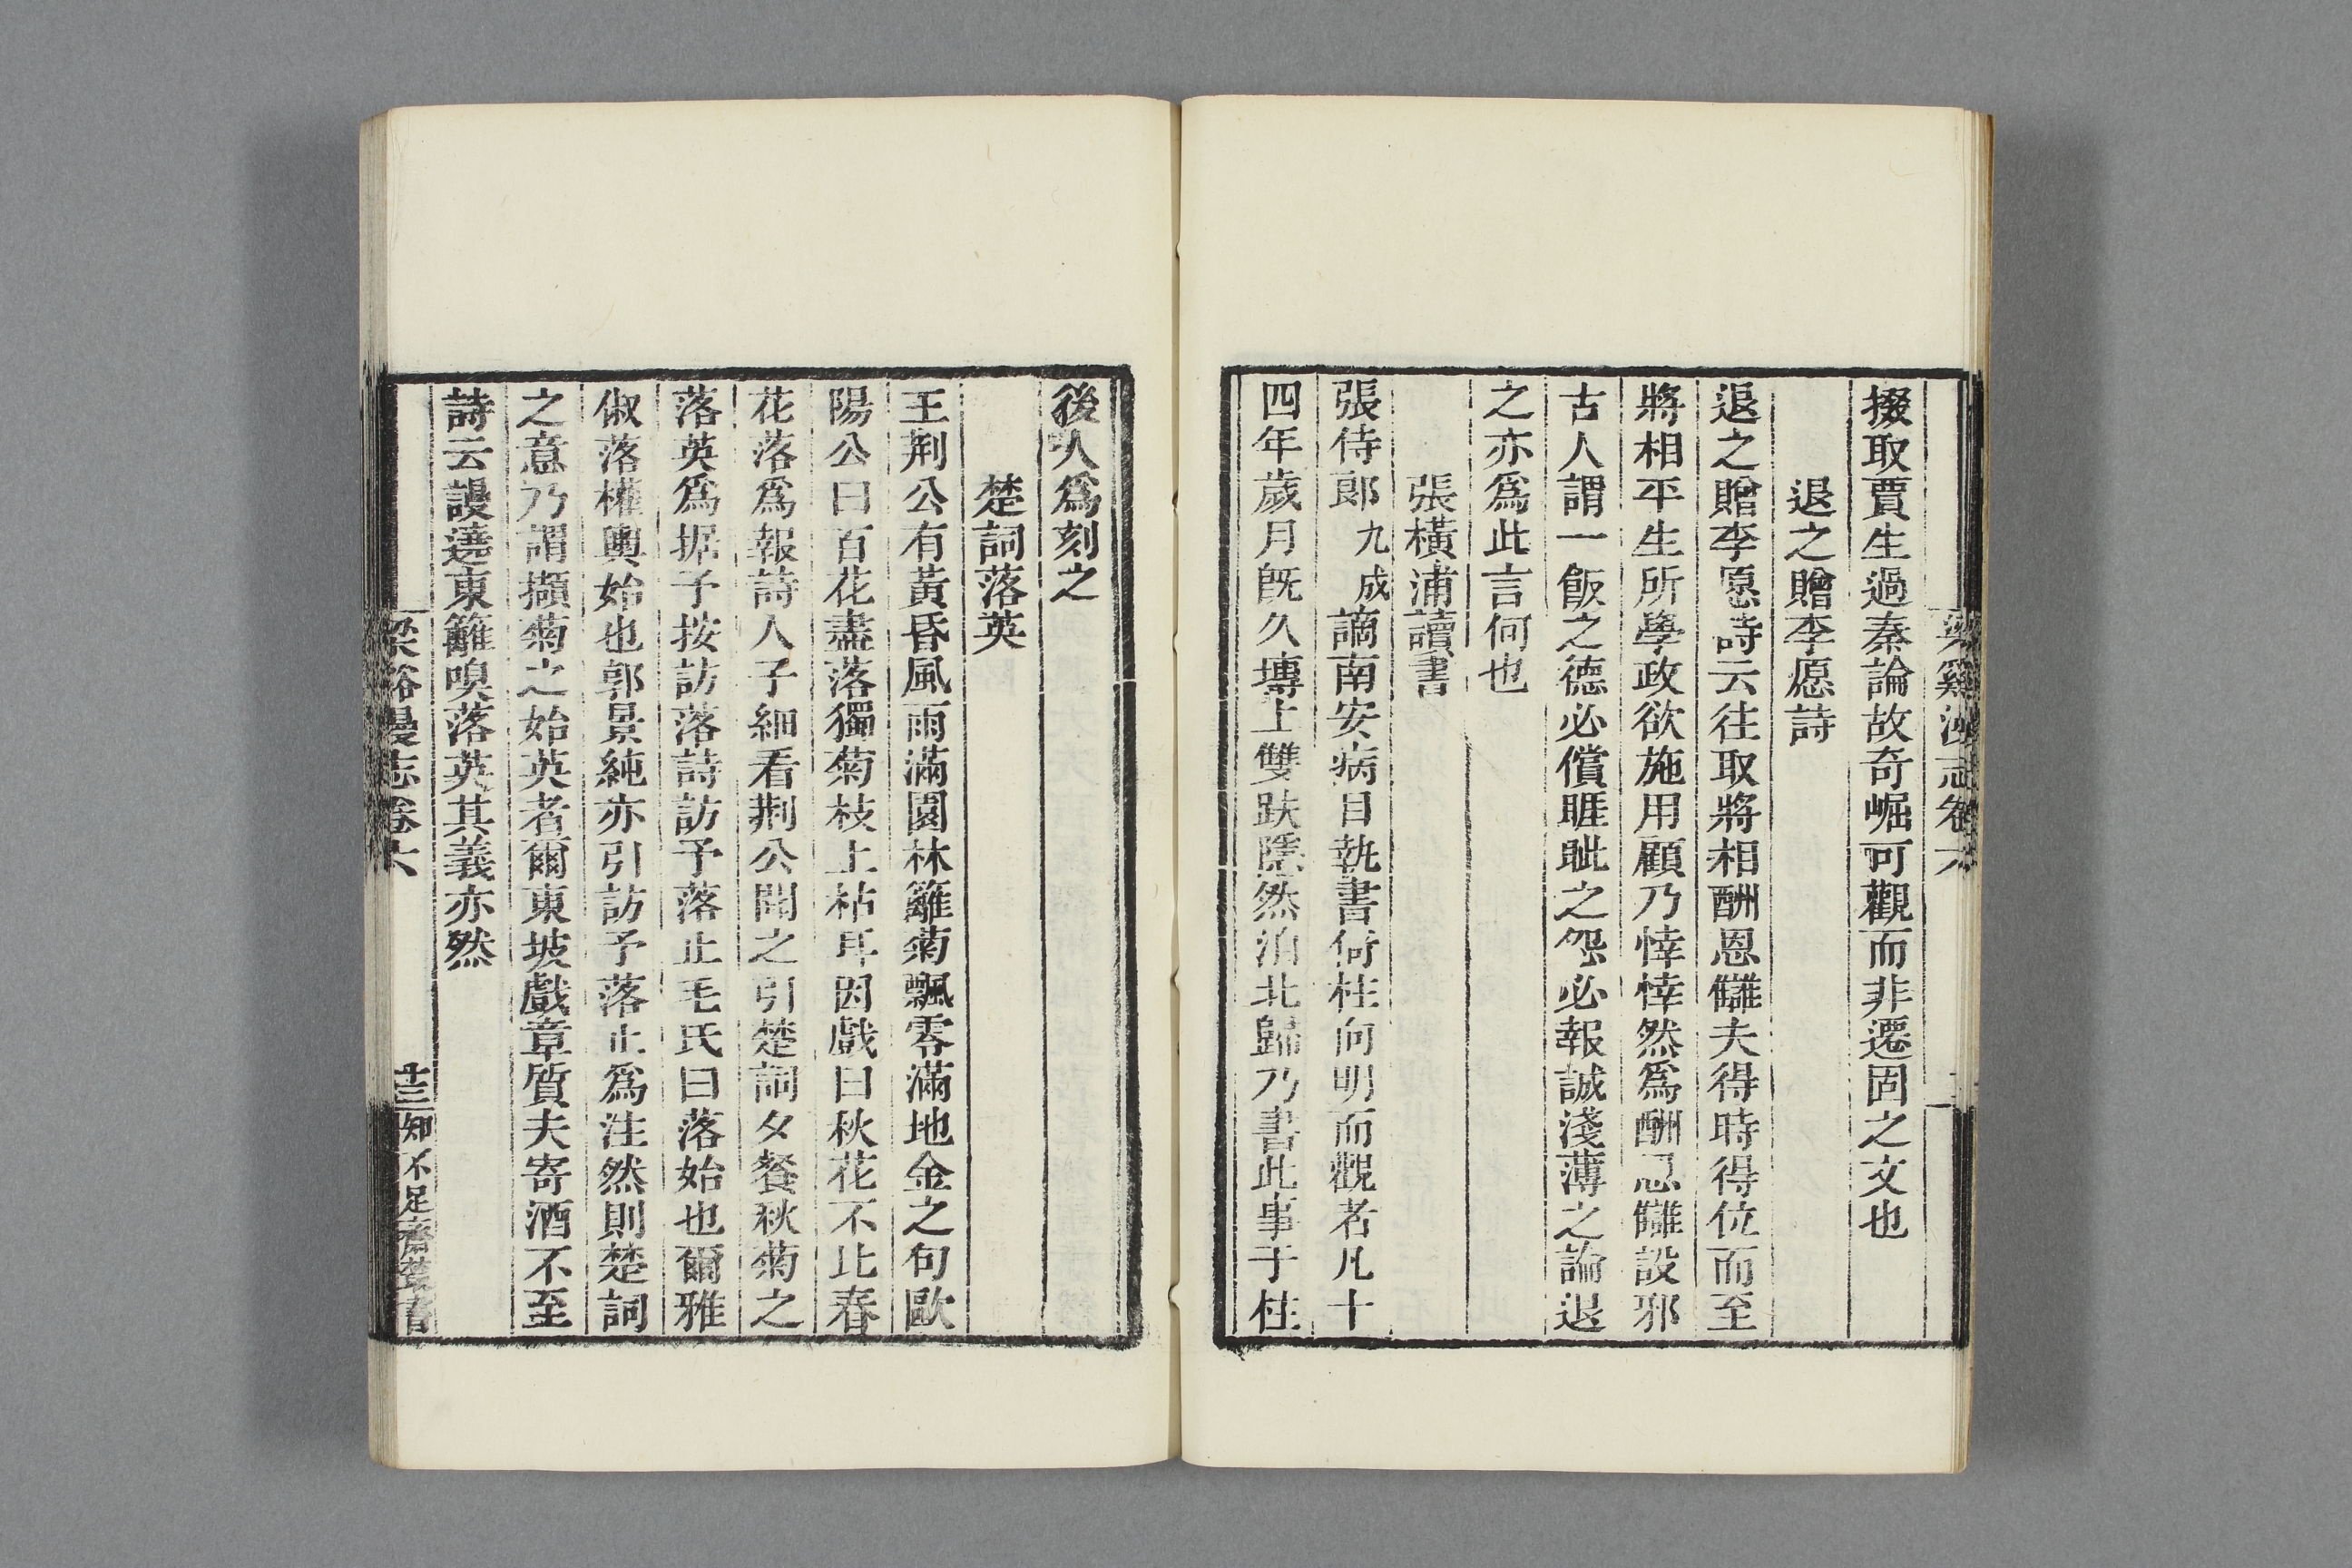 掇取賈生過秦論故奇崛可觀而非遷固之文也
退之贈李愿詩
退之贈李愿詩云往取將相酬恩讎夫得時得位而至
將相平生所學政欲施用顧乃悻悻然爲酬恩讎設邪
古人謂一飯之德必償睚眦之怨必報誠淺薄之論退
之亦爲此言何也
張橫浦讀書
張侍郞九成謫南安病目執書倚柱向明而觀者凡十
四年歲月旣久塼上雙趺隱然洎北歸乃書此事于柱
後人爲刻之
楚詞落英
王荆公有黃昏風雨滿園林籬菊飄零滿地金之句歐
陽公曰百花盡落獨菊枝上枯耳因戲曰秋花不比春
花落爲報詩人子細看荆公聞之引楚詞夕餐秋菊之
落英爲据予按訪落詩訪予落止毛氏曰落始也爾雅
俶落權輿始也郭景純亦引訪予落止爲注然則楚詞
之意乃謂擷菊之始英者爾東坡戲章質夫寄酒不至
詩云謾遶東籬嗅落英其義亦然
梁谿漫志卷六
十三
知不足齋叢書